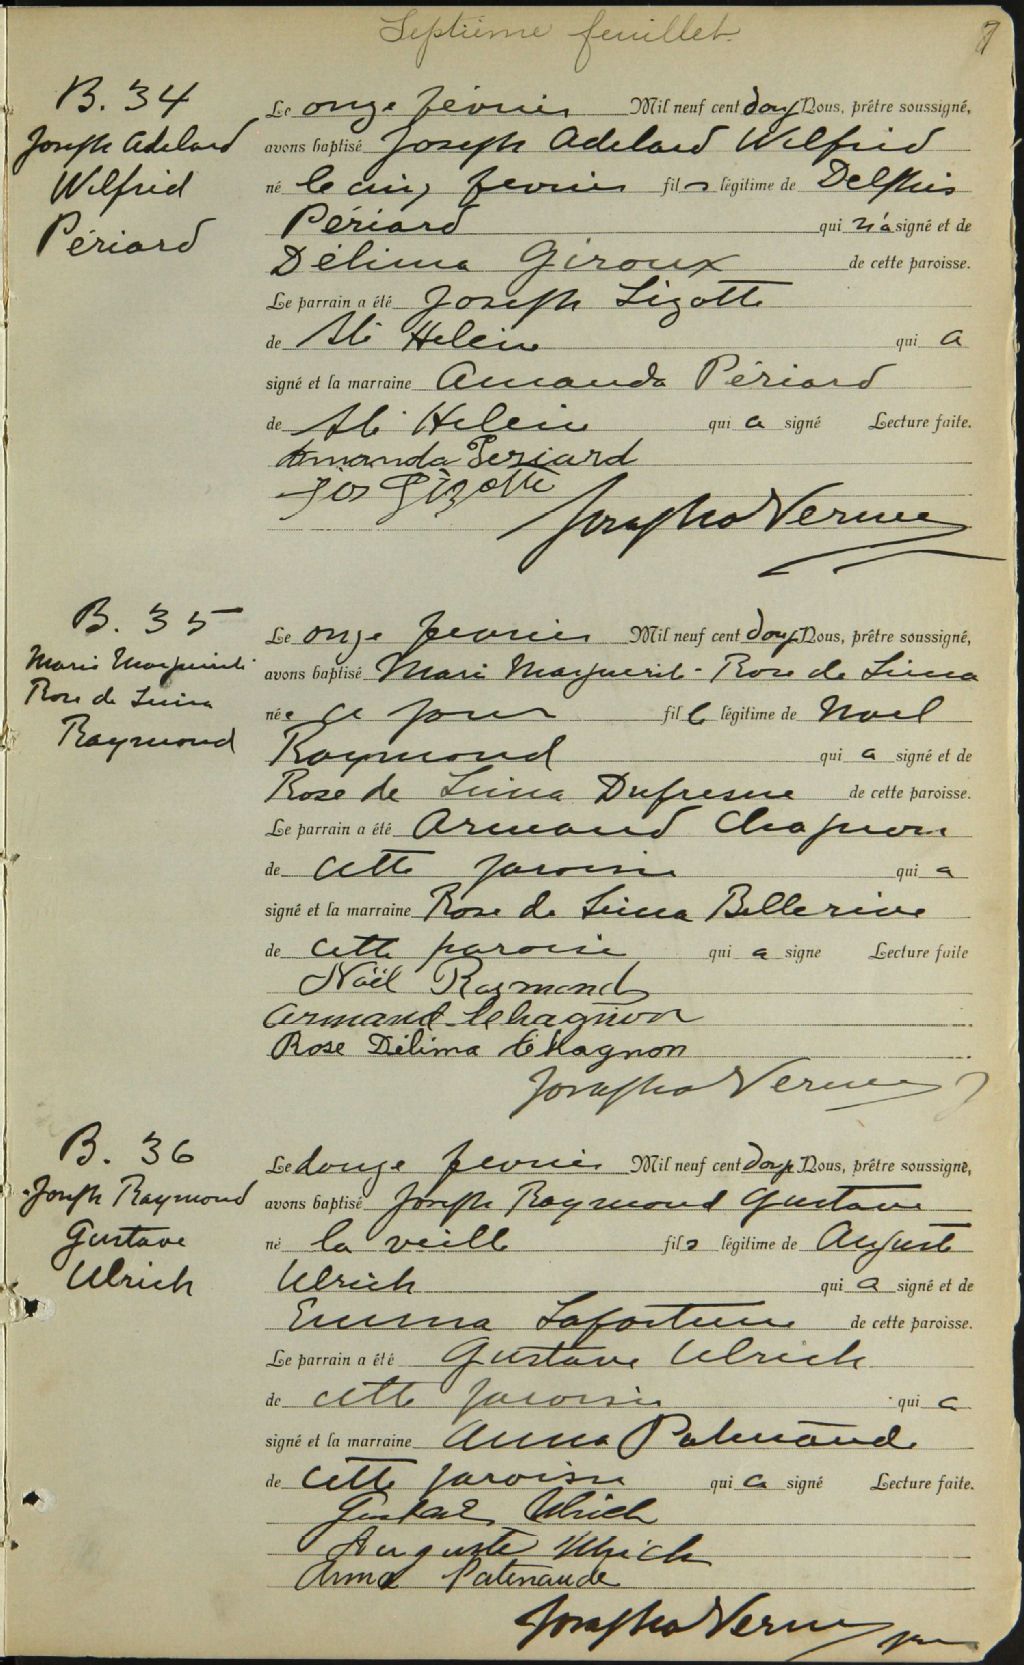 Septième feuillet.
7
B. 34
Joseph Adelard
Wilfrid
Périard
Le onze février Mil neuf cent douze Nous, prêtre soussigné,
avons baptisé Joseph Adelard Wilfrid
né le cinq fevrier fils légitime de Delphis
Périard qui n'a signé et de
Délima Giroux de cette paroisse.
Le parrain a été Joseph Lizotte
de Ste Helène qui a
signé et la marraine Amanda Périard
de Ste Helène qui a signé Lecture faite.
Amanda Periard
Jos Lizotte
B. 35
Marie Marguerite
Rose de Lima
Raymond
Le onze fevrier Mil neuf cent douze Nous, prêtre soussigné,
avons baptisé Marie Marguerite Rose de Lima
née ce jour fille légitime de Noel
Raymond qui a signé et de
Rose de Lima Dufresne de cette paroisse.
Le parrain a été Armand Chagnon
de cette paroisse qui a
signé et la marraine Rose de Lima Bellerive
de cette paroisse qui a signe Lecture faite
Noël Raymond
Armand Chagnon
Rose Délima Chagnon
B. 36
Joseph Raymond
Gustave
Ulrich
Le douze fevrier Mil neuf cent douze Nous, prêtre soussigné,
avons baptisé Joseph Raymond Gustave
né la veille fils légitime de Auguste
Ulrich qui a signé et de
Emma Lafortune de cette paroisse.
Le parrain a été Gustave Ulrich
de cette paroisse qui a
signé et la marraine Anna Patenaude
de cette paroisse qui a signé Lecture faite.
Gustave Ulrich
Auguste Ulrich
Anna Patenaude